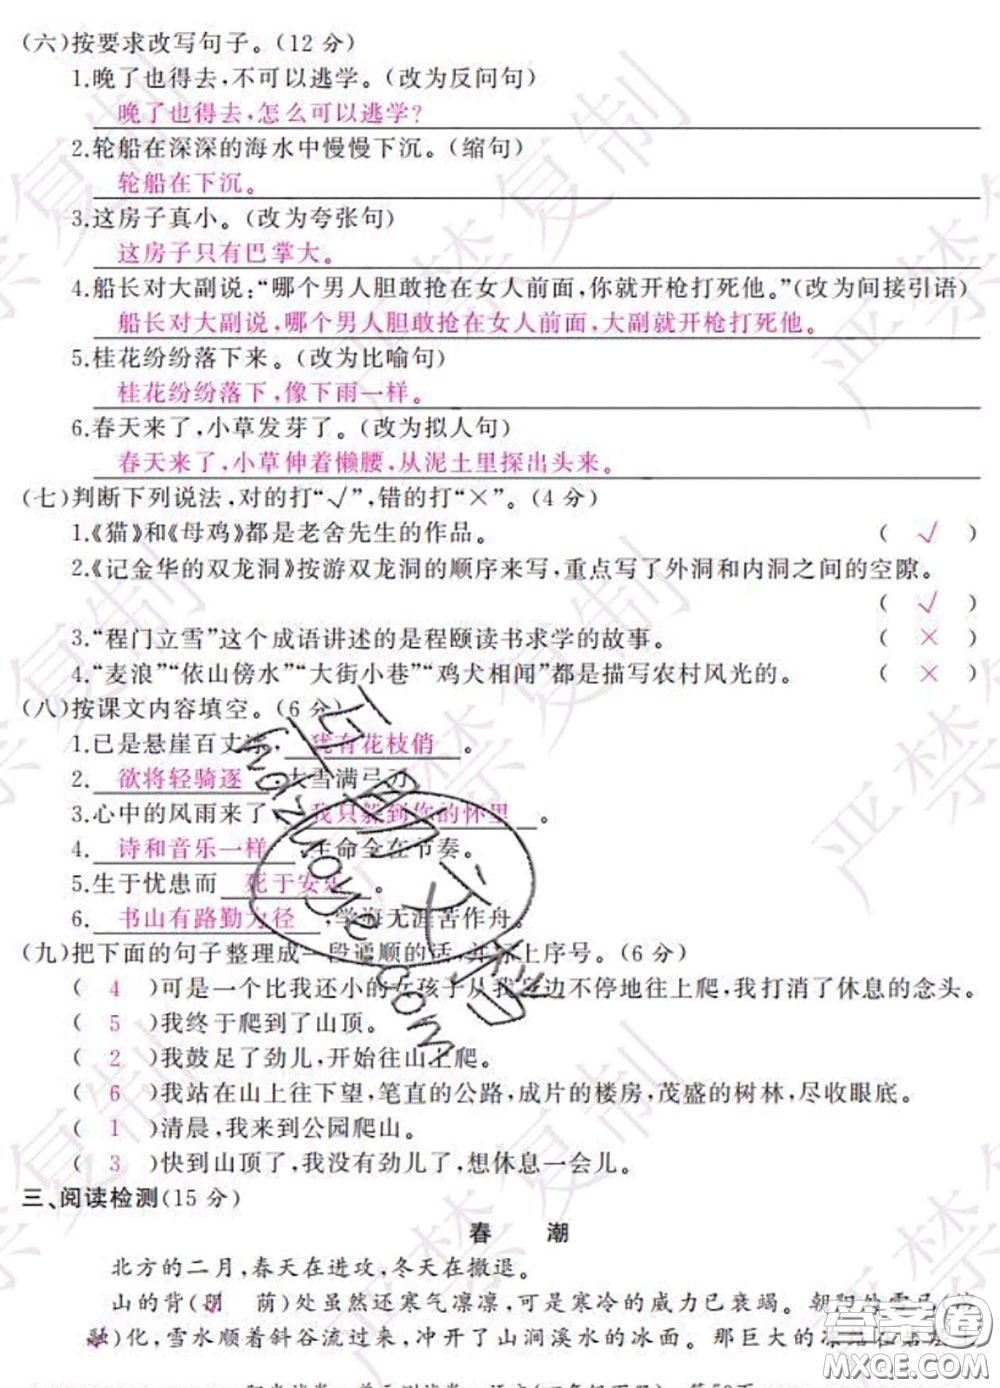 (六)按要求改写句子。(12 分)
1.晚了也得去,不可以逃学。(改为反问句)
晚了也得去,怎么可以逃学?
2.轮船在深深的海水中慢慢下沉。(缩句)
轮船在下沉。
3.这房子真小。(改为夸张句)
这房子只有巴掌大。
4.船长对大副说:“哪个男人胆敢抢在女人前面,你就开枪打死他。”(改为间接引语)
船长对大副说,哪个男人胆敢抢在女人前面,大副就开枪打死他。
5.桂花纷纷落下来。(改为比喻句)
桂花纷纷落下,像下雨一样。
6.春天来了,小草发芽了。(改为拟人句)
春天来了,小草伸着懒腰,从泥土里探出头来。
(七)判断下列说法,对的打“√”,错的打“×”。(4 分)
1.《猫》和《母鸡》都是老舍先生的作品。 ( √ )
2.《记金华的双龙洞》按游双龙洞的顺序来写,重点写了外洞和内洞之间的空隙。
( √ )
3.“程门立雪”这个成语讲述的是程颐读书求学的故事。 ( × )
4.“麦浪”“依山傍水”“大街小巷”“鸡犬相闻”都是描写农村风光的。 ( × )
(八)按课文内容填空。(6 分)
1.已是悬崖百丈冰, 犹有花枝俏 。
2. 欲将轻骑逐 ,大雪满弓刀。
3.心中的风雨来了, 我只躲到你的怀里 。
4. 诗和音乐一样 ,生命全在节奏。
5.生于忧患而 死于安乐 。
6. 书山有路勤为径 ,学海无涯苦作舟。
(九)把下面的句子整理成一段通顺的话,并标上序号。(6 分)
( 4 )可是一个比我还小的女孩子从我身边不停地往上爬,我打消了休息的念头。
( 5 )我终于爬到了山顶。
( 2 )我鼓足了劲儿,开始往山上爬。
( 6 )我站在山上往下望,笔直的公路,成片的楼房,茂盛的树林,尽收眼底。
( 1 )清晨,我来到公园爬山。
( 3 )快到山顶了,我没有劲儿了,想休息一会儿。
三、阅读检测(15 分)
春 潮
北方的二月,春天在进攻,冬天在撤退。
山的背(阴 荫)处虽然还寒气凛凛,可是寒冷的威力已衰竭。朝阳
融)化,雪水顺着斜谷流过来,冲开了山涧溪水的冰面。那巨大的
答案卷
MXQE.COM
严禁复制